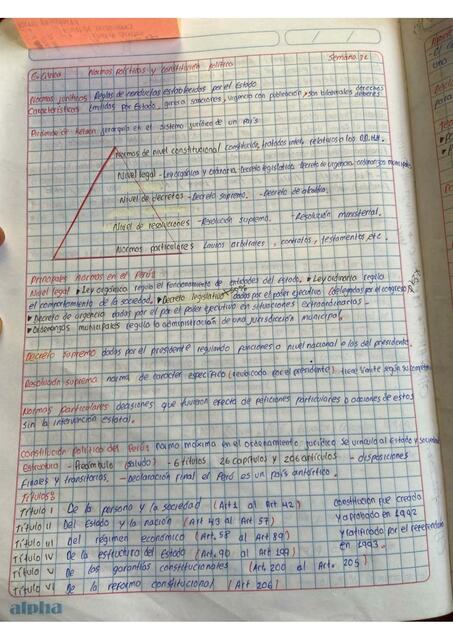 Cívica Normas políticas y constitución política Semana 12
Normas jurídicas Reglas de conductas establecidas por el Estado
Características Emitidas por Estado, genera sanciones, vigencia con publicación, son bilaterales derechos deberes
Pirámide de Kelsen jerarquía en el sistema jurídico de un país
Normas de nivel constitucional constitución, tratados inter. relativos a los DD.HH.
Nivel legal - Ley orgánica y ordinaria Decreto legislativo Decreto de urgencia ordenanzas municipales
Nivel de decretos - Decreto supremo. - Decreto de alcaldía.
Nivel de resoluciones - Resolución suprema. - Resolución ministerial.
Normas particulares Laudos arbitrales, contratos, testamentos, etc.
Principales normas en el Perú
Nivel legal • Ley orgánica regula el funcionamiento de entidades del estado. • Ley ordinaria regula
el comportamiento de la sociedad. • Decreto legislativo dadas por el poder ejecutivo (delegadas por el congreso)
• Decreto de urgencia dadas por el por el poder ejecutivo en situaciones extraordinarias -
• Ordenanzas municipales regula la administración de una jurisdicción municipal.
Decreto supremo dadas por el presidente regulando funciones a nivel nacional o las del presidente.
Resolución suprema norma de carácter específico (revocado por el presidente)
Normas particulares decisiones que tuvieron efecto de peticiones particulares o acciones de estos
sin la intervención estatal.
Constitución política del Perú: norma máxima en el ordenamiento jurídico se vincula al Estado y sociedad
Estructura - Preámbulo (saludo) - 6 títulos 26 capítulos y 206 artículos - disposiciones
finales y transitorias. - Declaración final el Perú es un país antártico.
Títulos:
Título I De la persona y la sociedad (Art 1 al Art 42)
Título II Del Estado y la nación (Art 43 al Art 57)
Título III Del régimen económico (Art. 58 al Art 89)
Título IV De la estructura del Estado (Art. 90 al Art 199)
Título V De las garantías constitucionales (Art. 200 al Art. 205)
Título VI De la reforma constitucional (Art 206)
constitución fue creada
y aprobada en 1992
y ratificada por el referendum
en 1993.
alpha